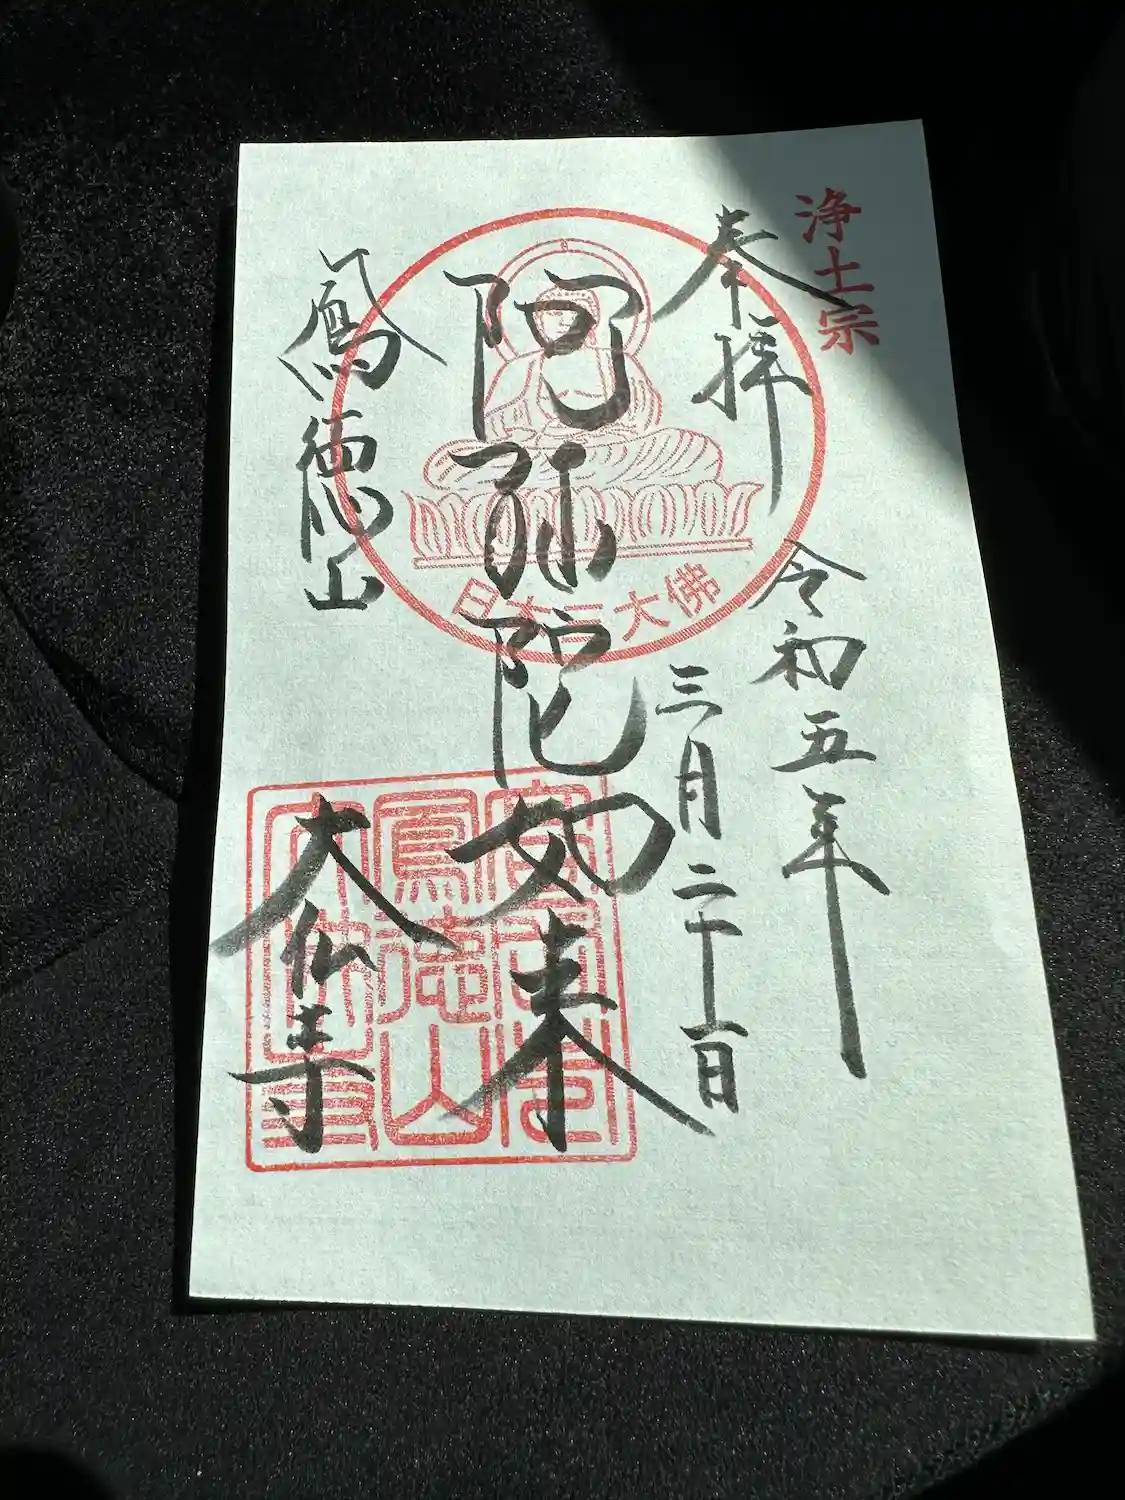 浄土宗
奉拝
令和五年
三月二十一日
阿弥陀如来
日本三大佛
鳳徳山
大仏寺
鳳徳山
大佛寺